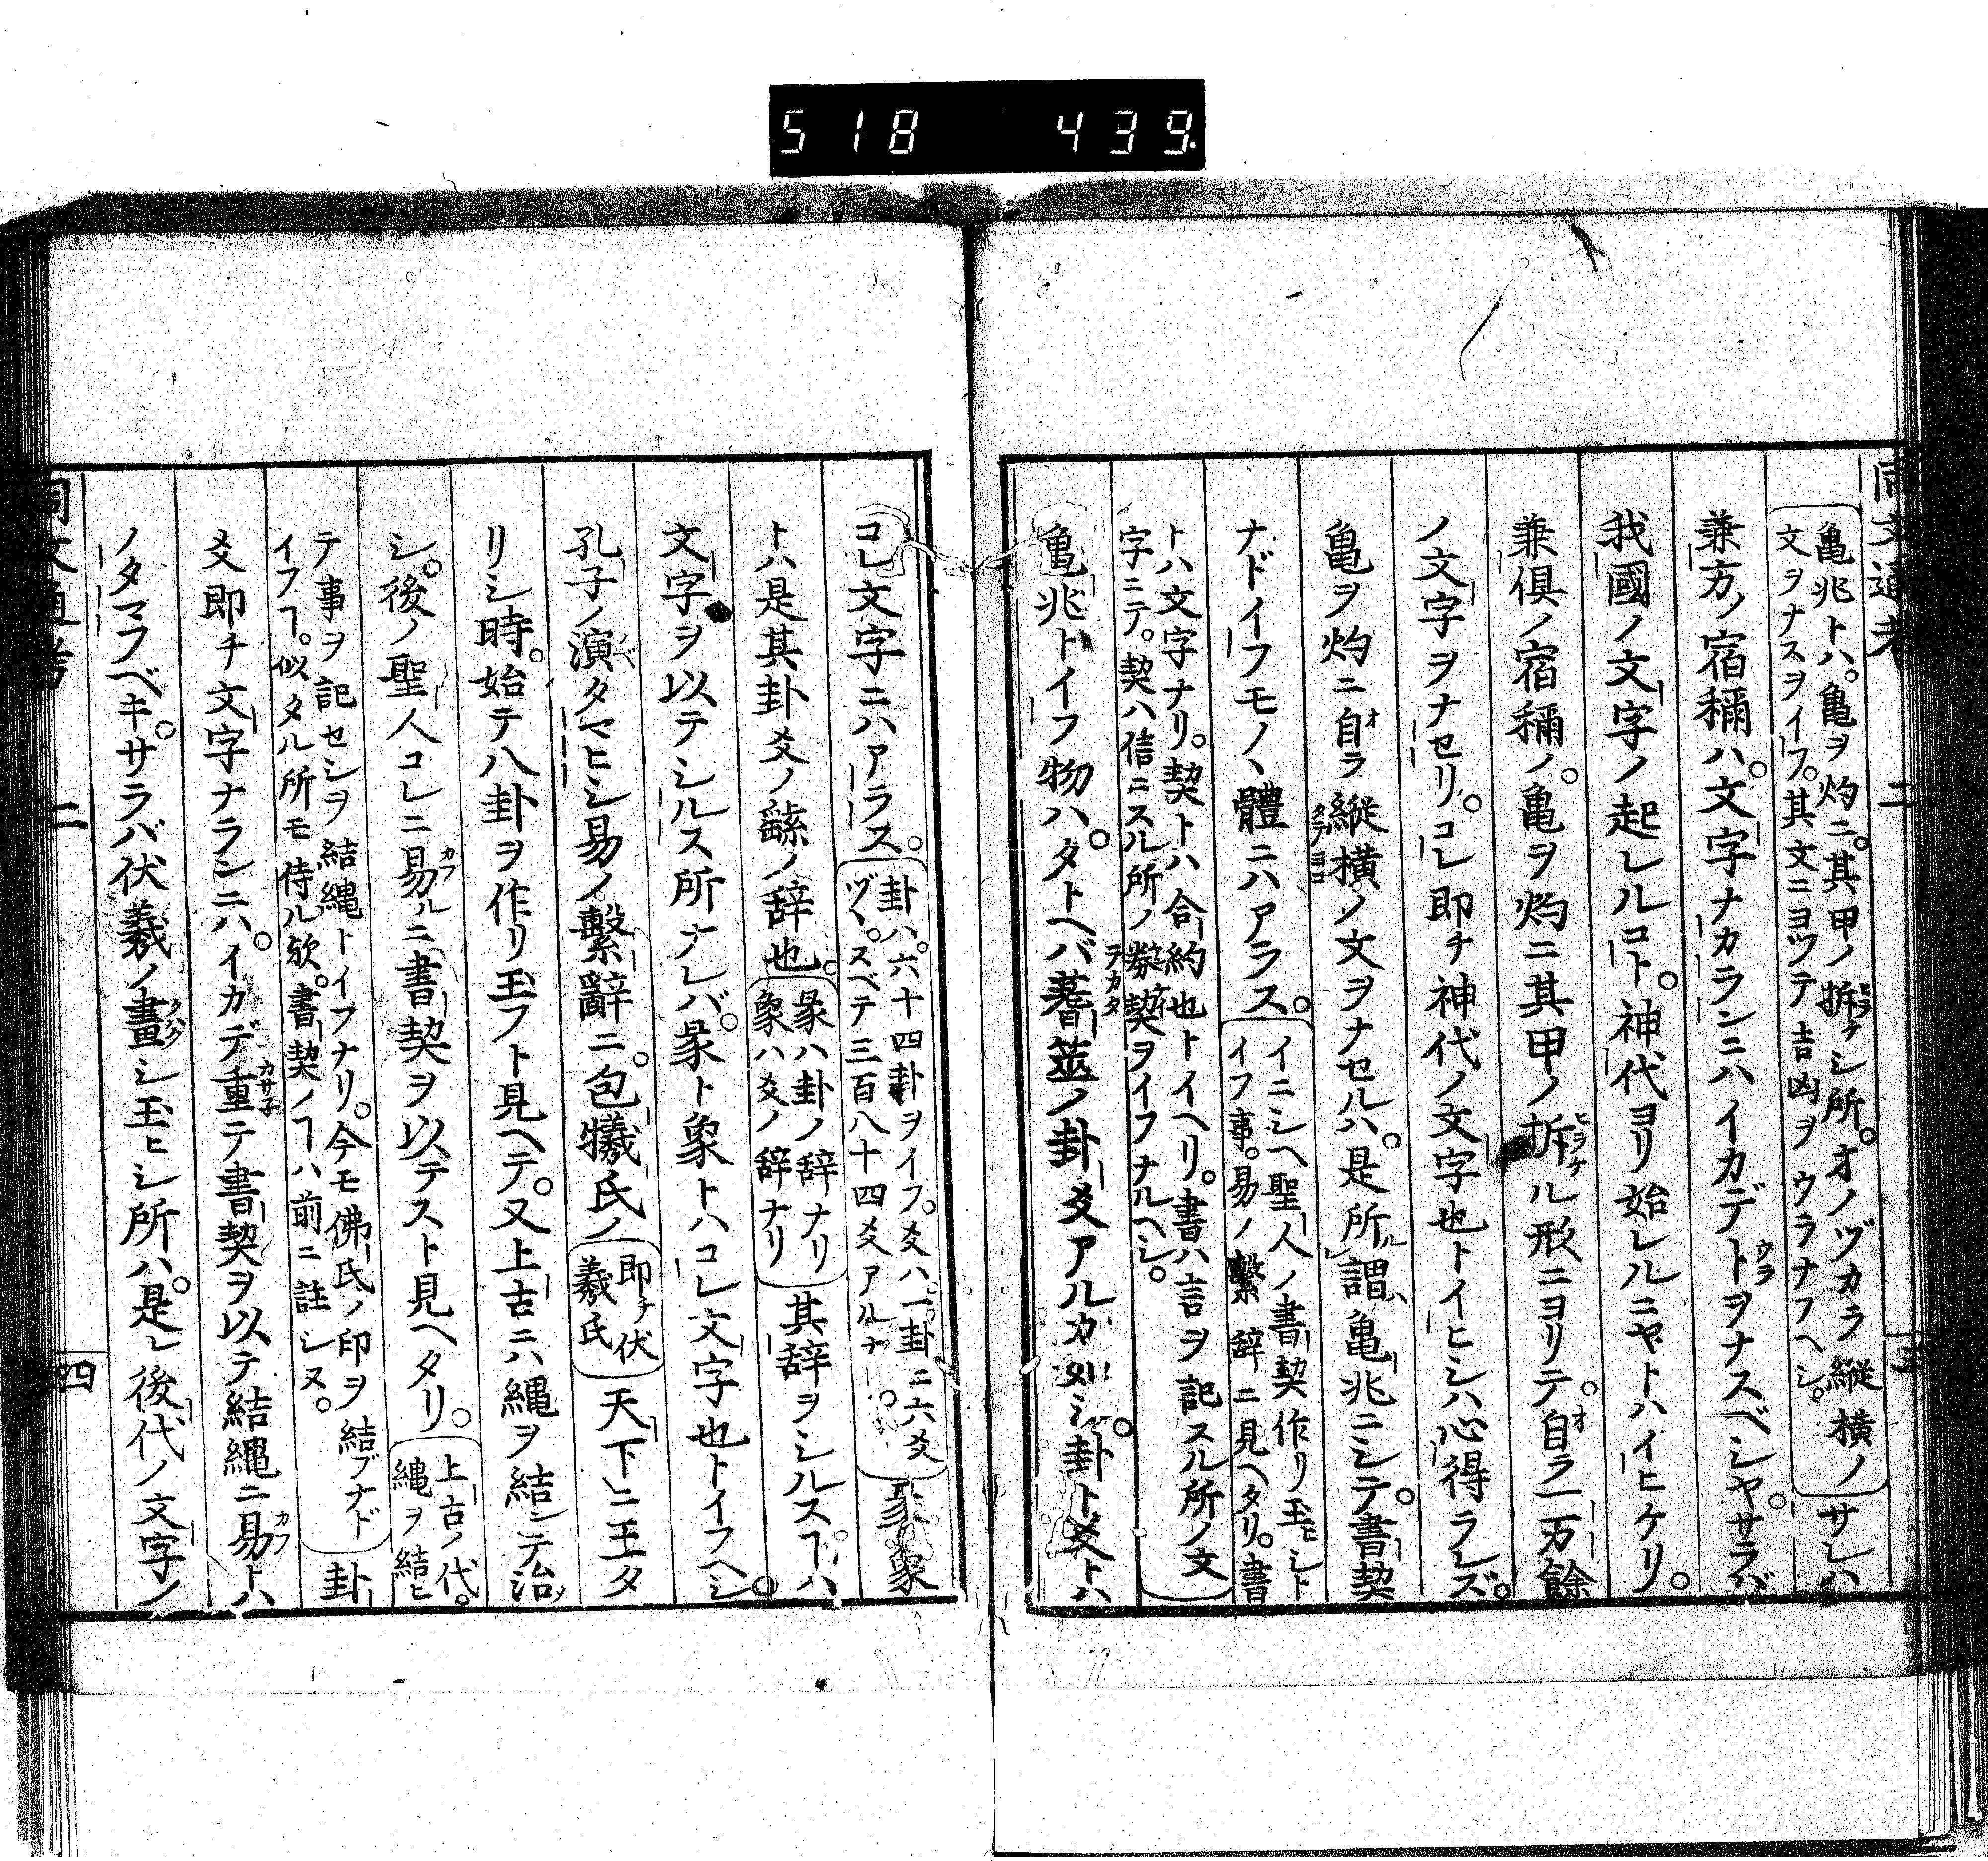 518 439
同文通考 二 三
亀兆トハ。亀ヲ灼ニ。其甲ノ拆ヒラケシ所。オノヅカラ縦横ノ
文ヲナスヲイフ。其文ニヨツテ吉凶ヲウラナフヘシ。
サレハ
兼方ノ宿稱ハ。文字ナカランニハイカデトウラヲナスベシヤ。サラバ
我國ノ文字ノ起レルコト。神代ヨリ始レルニヤトハイヒケリ。
兼倶ノ宿稱ノ。亀ヲ灼ニ其甲ノ拆ヒラケル形ニヨリテ。自オラ一万餘
ノ文字ヲナセリ。コレ即チ神代ノ文字也トイヒシハ心得ラレズ。
亀ヲ灼ニ自オラ縦横タテヨコノ文ヲナセルハ。是所ル謂亀兆ニシテ。書契
ナドイフモノヽ體ニハアラス。
イニシヘ聖人ノ書契作リ玉ヒシト
イフ事。易ノ繫辞ニ見ヘタリ。書
トハ文字ナリ。契トハ合約也トイヘリ。書ハ言ヲ記スル所ノ文
字ニテ。契ハ信ニスル所ノ券契テカタヲイフナルヘシ。
亀兆トイフ物ハ。タトヘバ蓍筮ノ卦爻アルカ如シ。卦ト爻トハ
コレ文字ニハアラス。
卦ハ。六十四卦ヲイフ。爻ハ一卦ニ六爻
ヅヽ。スベテ三百八十四爻アルナ
彖象
トハ是其卦爻ノ繇ノ辞也。
彖ハ卦ノ辞ナリ
象ハ爻ノ辞ナリ
其辞ヲシルスヿハ
文字ヲ以テシルス所ナレバ。彖ト象トハコレ文字也トイフヘシ。
孔子ノ演ベタマヒシ易ノ繫辭ニ。包犧氏ノ
即チ伏
羲氏
天下ニ王タ
リシ時。始テ八卦ヲ作リ玉フト見ヘテ。又上古ニハ縄ヲ結ンテ治
シ。後ノ聖人コレニ易カフルニ書契ヲ以テスト見ヘタリ。
上古ノ代。
縄ヲ結ヒ
テ事ヲ記セシヲ結縄トイフナリ。今モ佛氏ノ印ヲ結ブナド
イフヿ。似タル所モ侍ル歟。書契ノヿハ前ニ註シヌ。
卦
爻即チ文字ナランニハ。イカデ重カサ子テ書契ヲ以テ結縄ニ易カフトハ
ノタマフベキ。サラバ伏羲ノ畫シ玉ヒシ所ハ。是レ後代ノ文字ノ
同文通考 二 四